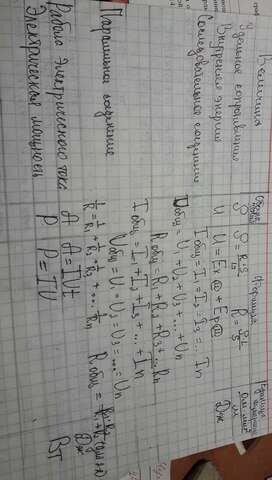 Величина Обозн. Формула Единица измерения
Удельное сопротивление ρ ρ = R·S/L R = ρ·l/S Ом·мм²/м
Внутренняя энергия U U = Eк + Eр Дж
Последовательное соединение Iобщ = I₁ = I₂ = I₃ = ... In
Uобщ = U₁ + U₂ + U₃ + ... + Un
Rобщ = R₁ + R₂ + R₃ + ... Rn
Параллельное соединение Iобщ = I₁ + I₂ + I₃ + ... + In
Uобщ = U₁ = U₂ = U₃ = ... = Un
1/R = 1/R₁ + 1/R₂ + 1/R₃ + ... 1/Rn Rобщ = R₁·R₂/R₁+R₂
Работа электрического тока A A = IUt Дж
Электрическая мощность P P = IU Вт